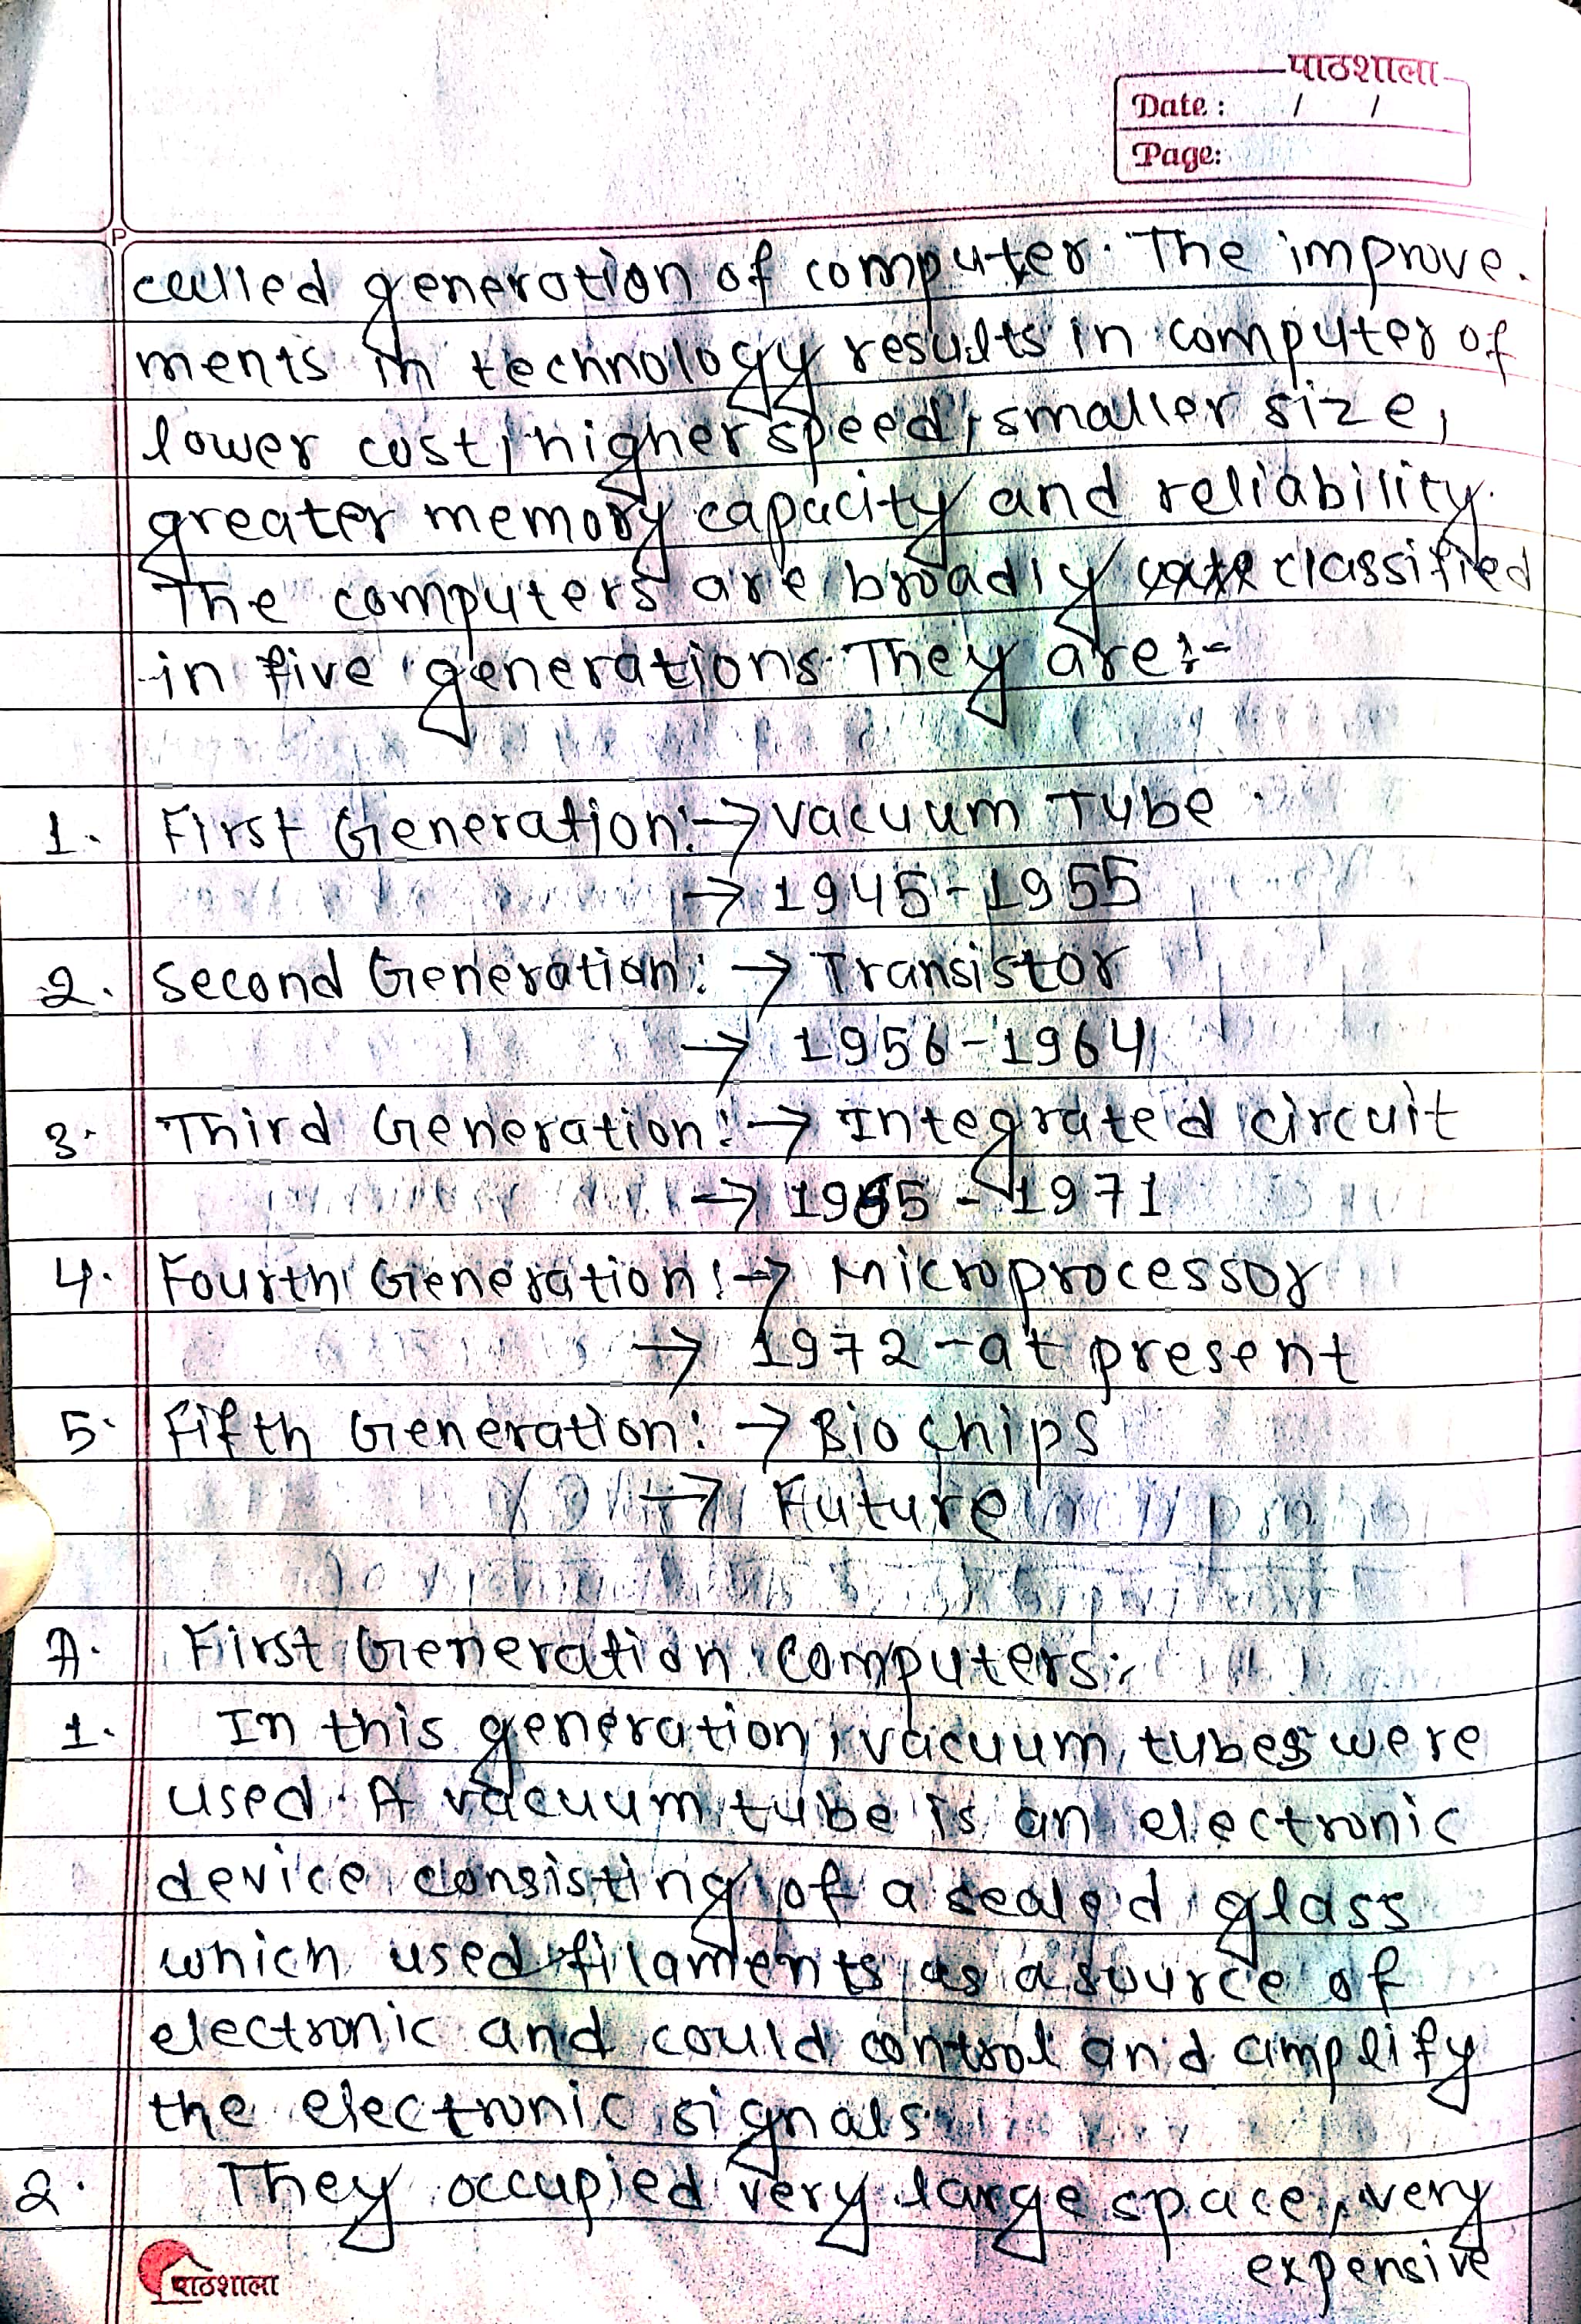 पाठशाला
Date : / /
Page:
P
called generation of computer. The improve-
ments in technology results in computer of
lower cost, higher speed, smaller size,
greater memory capacity and reliability.
The computers are broadly classified
in five generations. They are:-
1. First Generation:→ Vacuum Tube
→ 1945-1955
2. Second Generation: → Transistor
→ 1956-1964
3. Third Generation:→ Integrated circuit
→ 1965-1971
4. Fourth Generation:→ Microprocessor
→ 1972-at present
5. Fifth Generation: → Bio chips
→ Future
A. First Generation computers:
1. In this generation, vacuum tubes were
used. A vacuum tube is an electronic
device consisting of a sealed glass
which used filaments as a source of
electronic and could control and amplify
the electronic signals.
2. They occupied very large space, very
expensive
पाठशाला